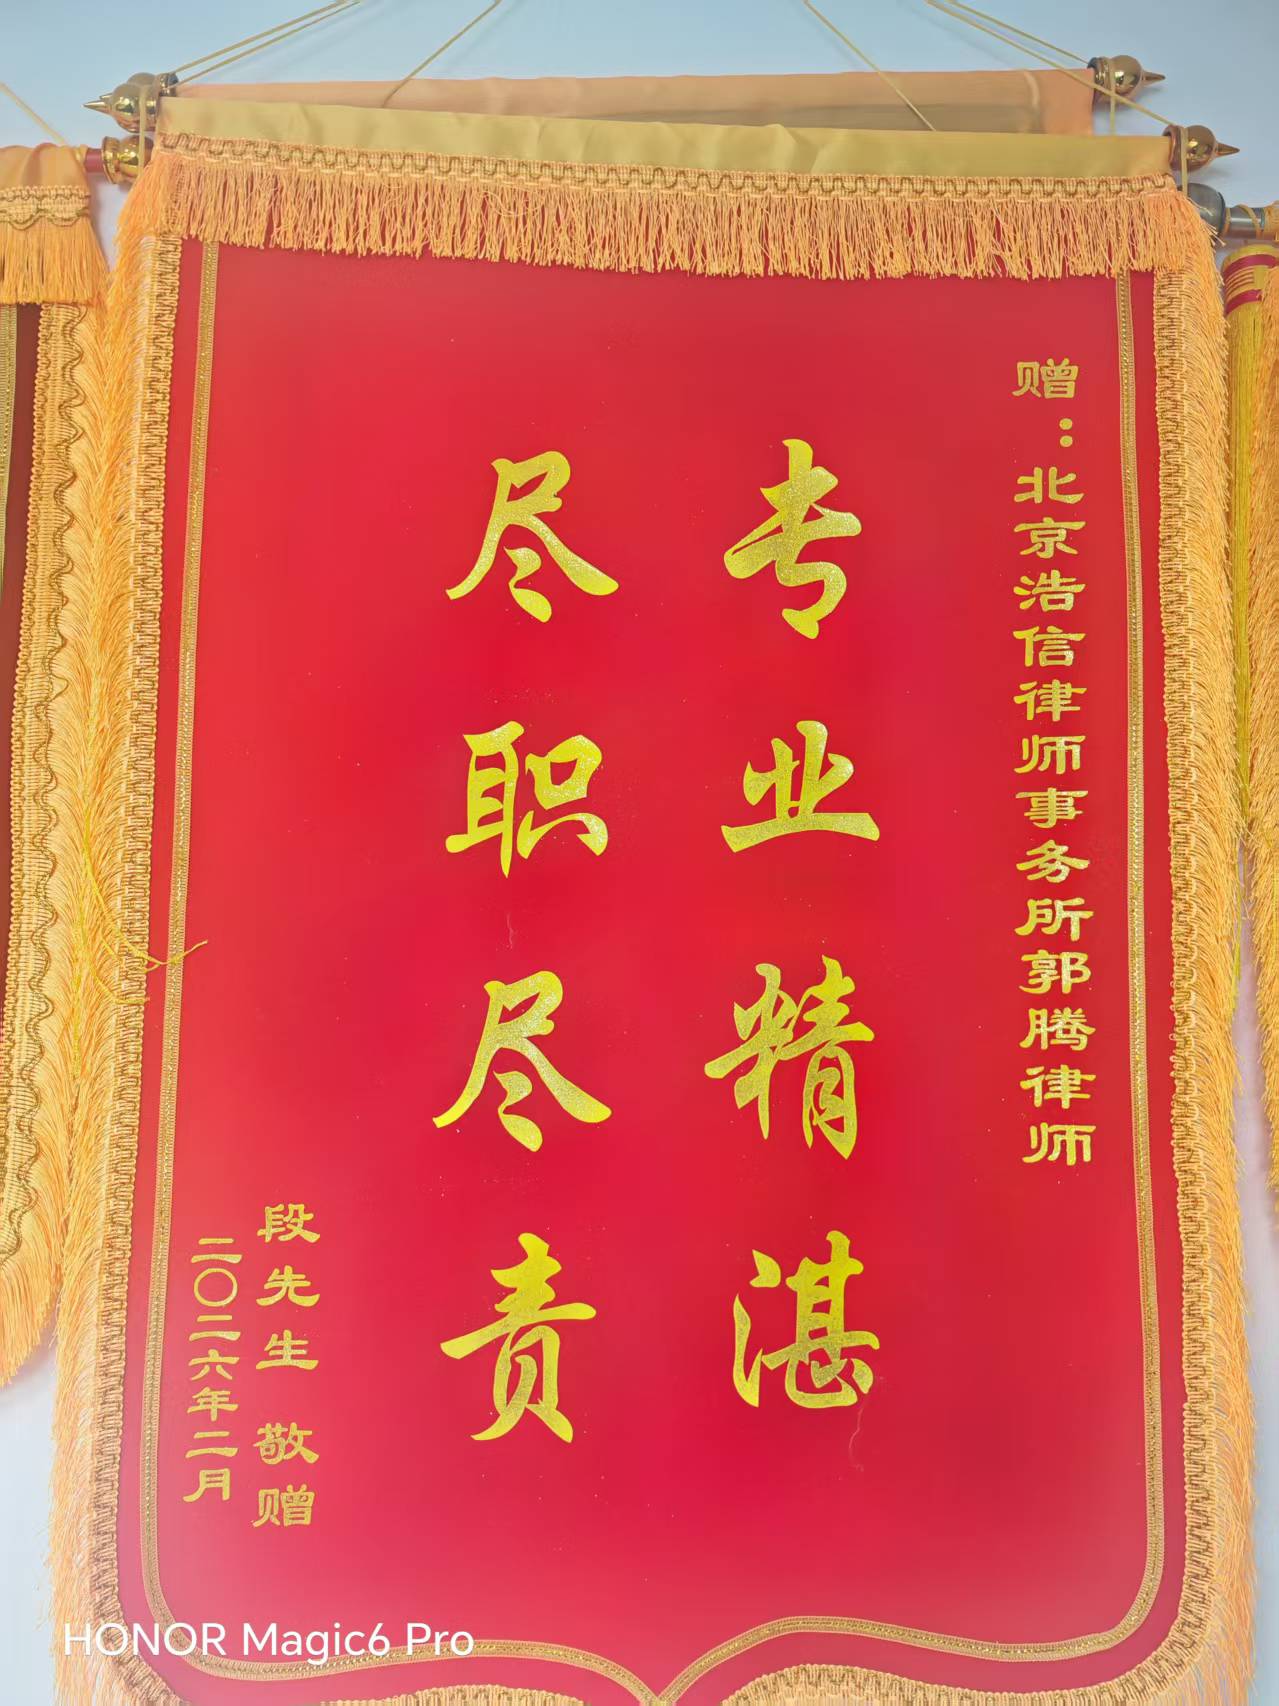 赠：北京浩信律师事务所郭腾律师
专业精湛
尽职尽责
段先生 敬赠
二〇二六年二月
HONOR Magic6 Pro